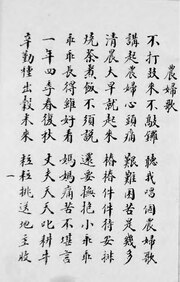 農婦歌
不打鼓來不敲鑼 聽我唱個農婦歌
講起農婦心頭痛 艱難困苦是幾多
清晨大早就起來 樁樁件件待安排
燒茶煮飯不須說 還要撫抱小乖乖
乖乖長得雖好看 媽媽痛苦不堪言
一年四季春復秋 丈夫天天此耕牛
辛勤出穀未來 粒粒挑送地主收
一